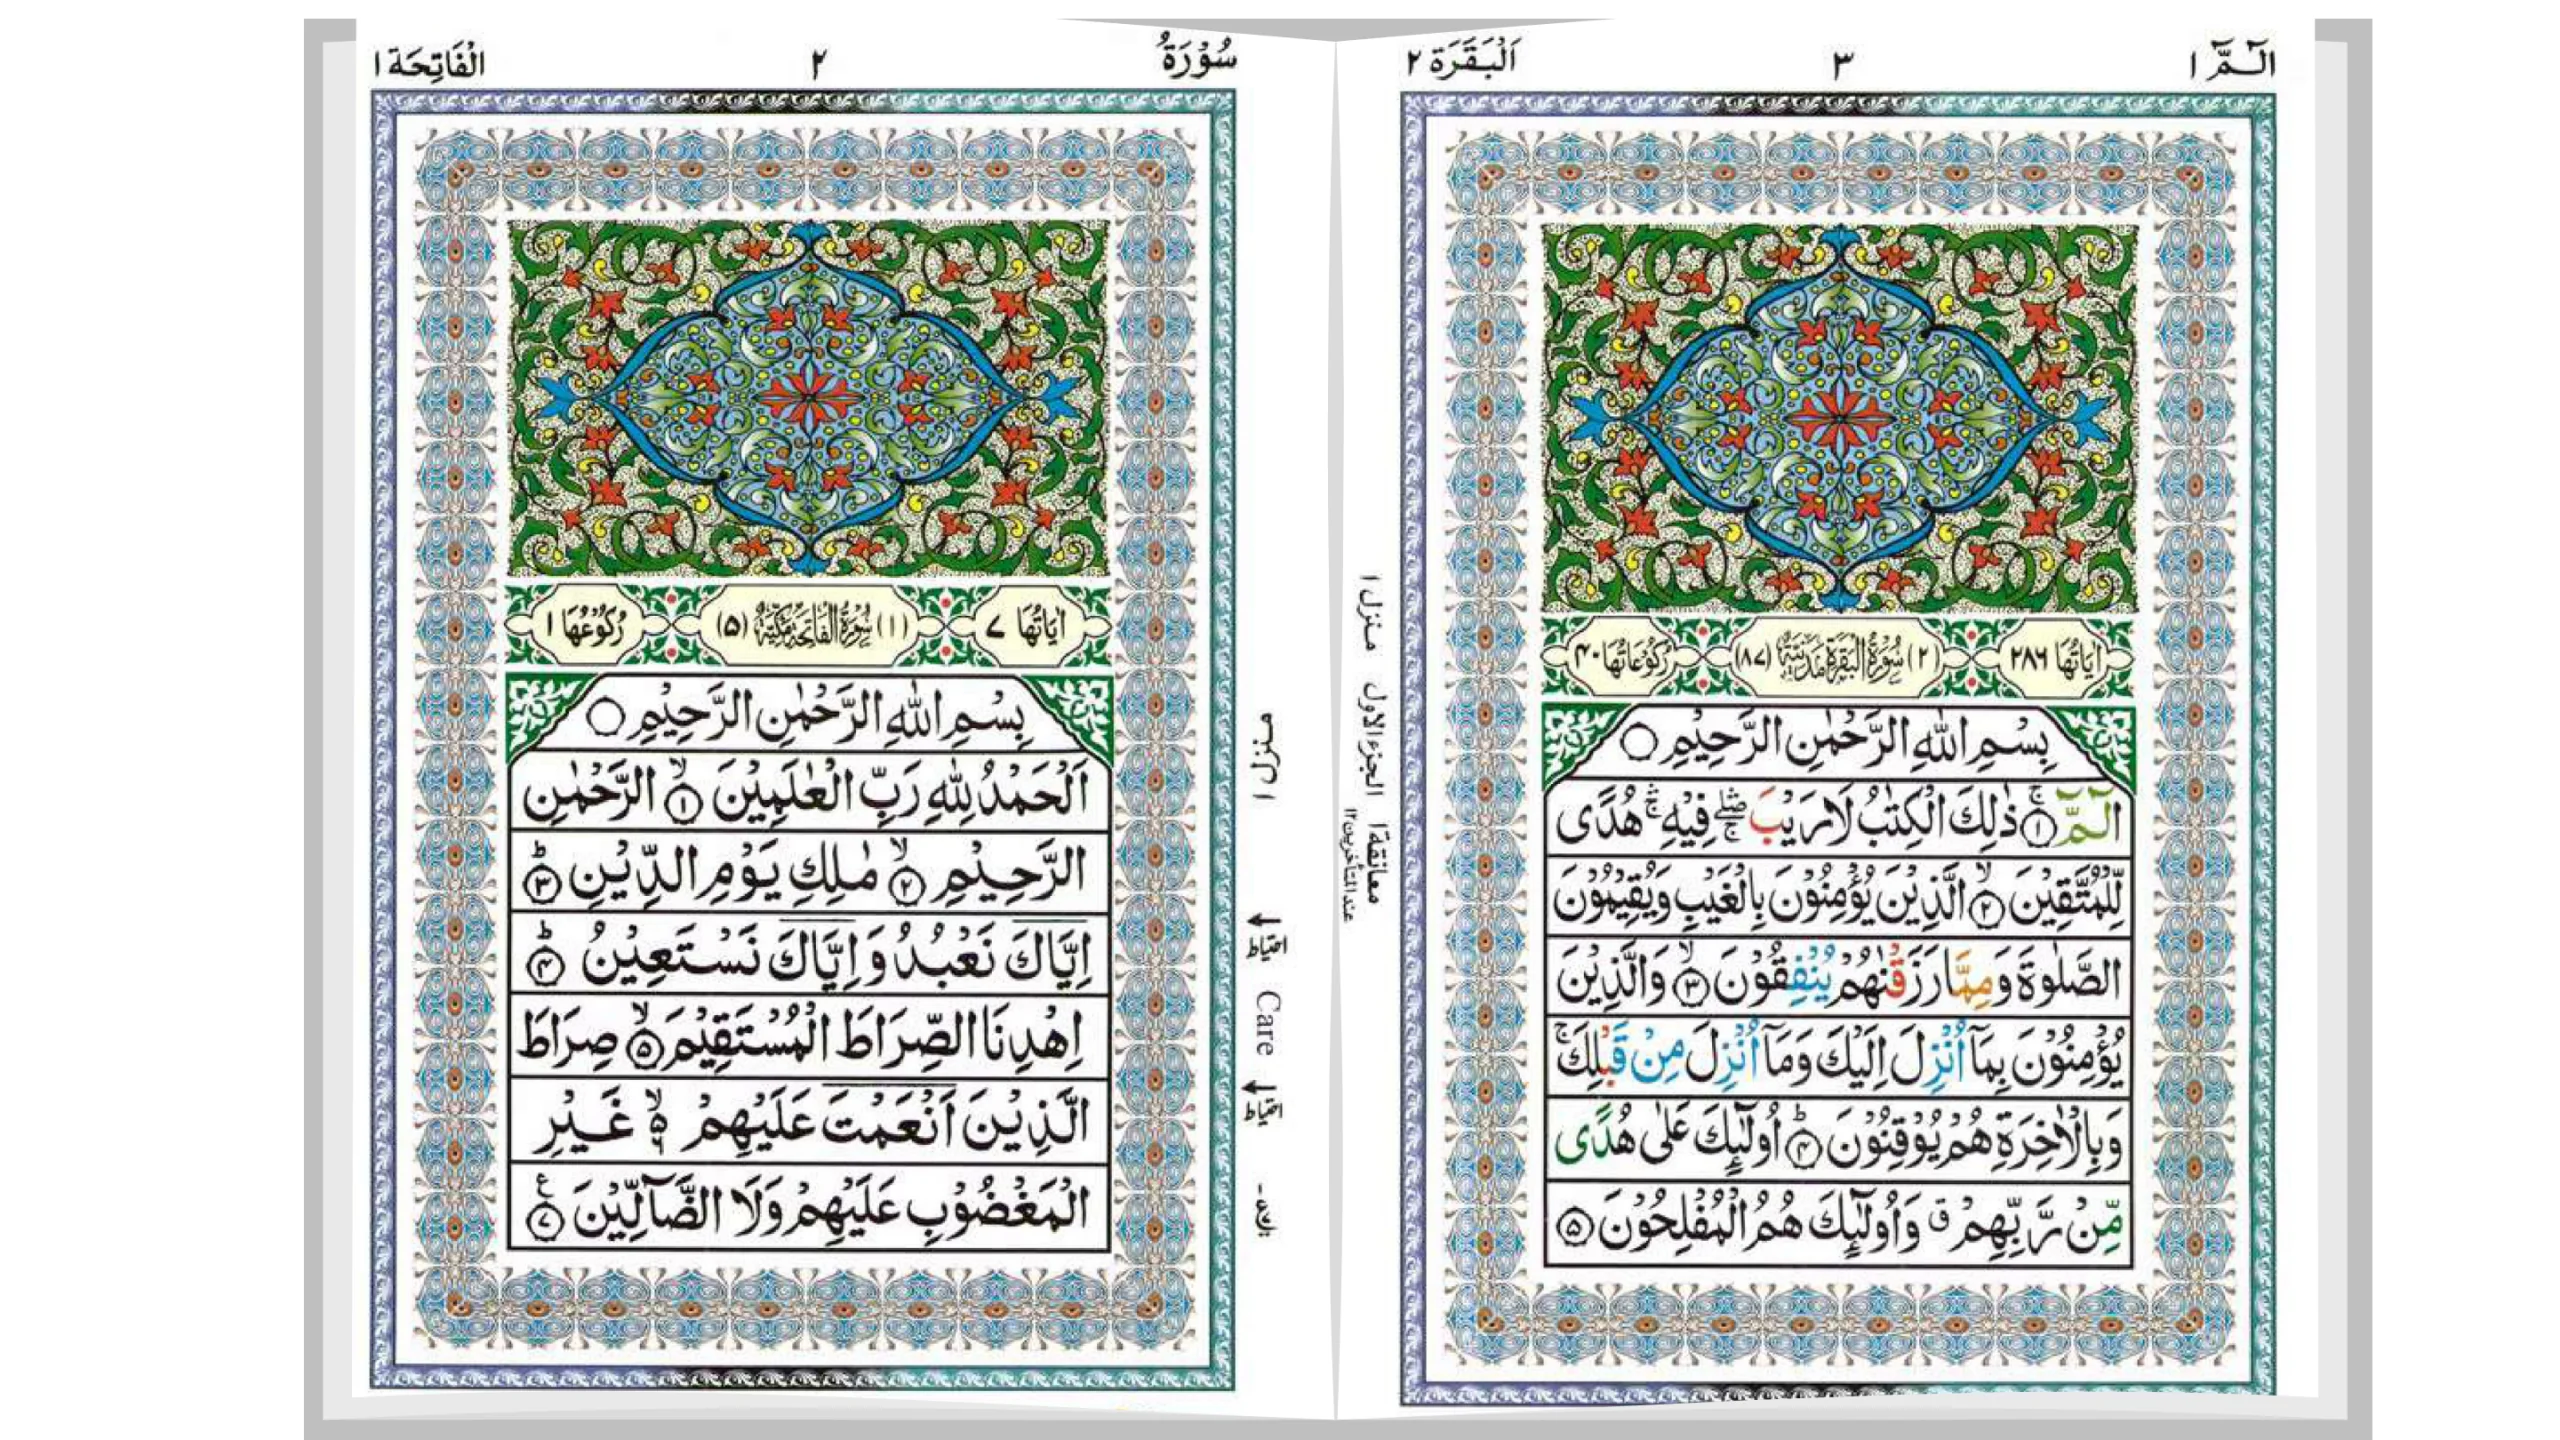 الْفَاتِحَة ١
٢
سُوْرَةُ
اٰيَاتُهَا ٧
(١) سُوْرَةُ الْفَاتِحَةِ مَكِّيَّةٌ (٥)
رُكُوْعُهَا ١
بِسْمِ اللّٰهِ الرَّحْمٰنِ الرَّحِيْمِ ۝
اَلْحَمْدُ لِلّٰهِ رَبِّ الْعٰلَمِيْنَ ۙ﴿١﴾ الرَّحْمٰنِ
الرَّحِيْمِ ۙ﴿٢﴾ مٰلِكِ يَوْمِ الدِّيْنِ ؕ﴿٣﴾
اِيَّاكَ نَعْبُدُ وَ اِيَّاكَ نَسْتَعِيْنُ ؕ﴿٤﴾
اِهْدِنَا الصِّرَاطَ الْمُسْتَقِيْمَ ۙ﴿٥﴾ صِرَاطَ
الَّذِيْنَ اَنْعَمْتَ عَلَيْهِمْ ۙ۬ۦ غَيْرِ
الْمَغْضُوْبِ عَلَيْهِمْ وَلَا الضَّآلِّيْنَ ﴿٧﴾ ع
منزل ١
احتیاط
Care
احتیاط
اَلْبَقَرَة ٢
٣
الٓـمّٓ ١
اٰيَاتُهَا ٢٨٦
(٢) سُوْرَةُ الْبَقَرَةِ مَدَنِيَّةٌ (٨٧)
رُكُوْعَاتُهَا ٤٠
بِسْمِ اللّٰهِ الرَّحْمٰنِ الرَّحِيْمِ ۝
الٓـمّٓ ۚ﴿١﴾ ذٰلِكَ الْكِتٰبُ لَا رَيْبَ ۛۖۚ فِيْهِ ۛۚ هُدًى
لِّلْمُتَّقِيْنَ ۙ﴿٢﴾ الَّذِيْنَ يُؤْمِنُوْنَ بِالْغَيْبِ وَيُقِيْمُوْنَ
الصَّلٰوةَ وَ مِمَّا رَزَقْنٰهُمْ يُنْفِقُوْنَ ۙ﴿٣﴾ وَالَّذِيْنَ
يُؤْمِنُوْنَ بِمَآ اُنْزِلَ اِلَيْكَ وَمَآ اُنْزِلَ مِنْ قَبْلِكَ ۚ
وَبِالْاٰخِرَةِ هُمْ يُوْقِنُوْنَ ؕ﴿٤﴾ اُولٰٓئِكَ عَلٰى هُدًى
مِّنْ رَّبِّهِمْ ۗ وَاُولٰٓئِكَ هُمُ الْمُفْلِحُوْنَ ﴿٥﴾
منزل ١ الجزء الاول معانقة ١
عند المتأخرين ١٢